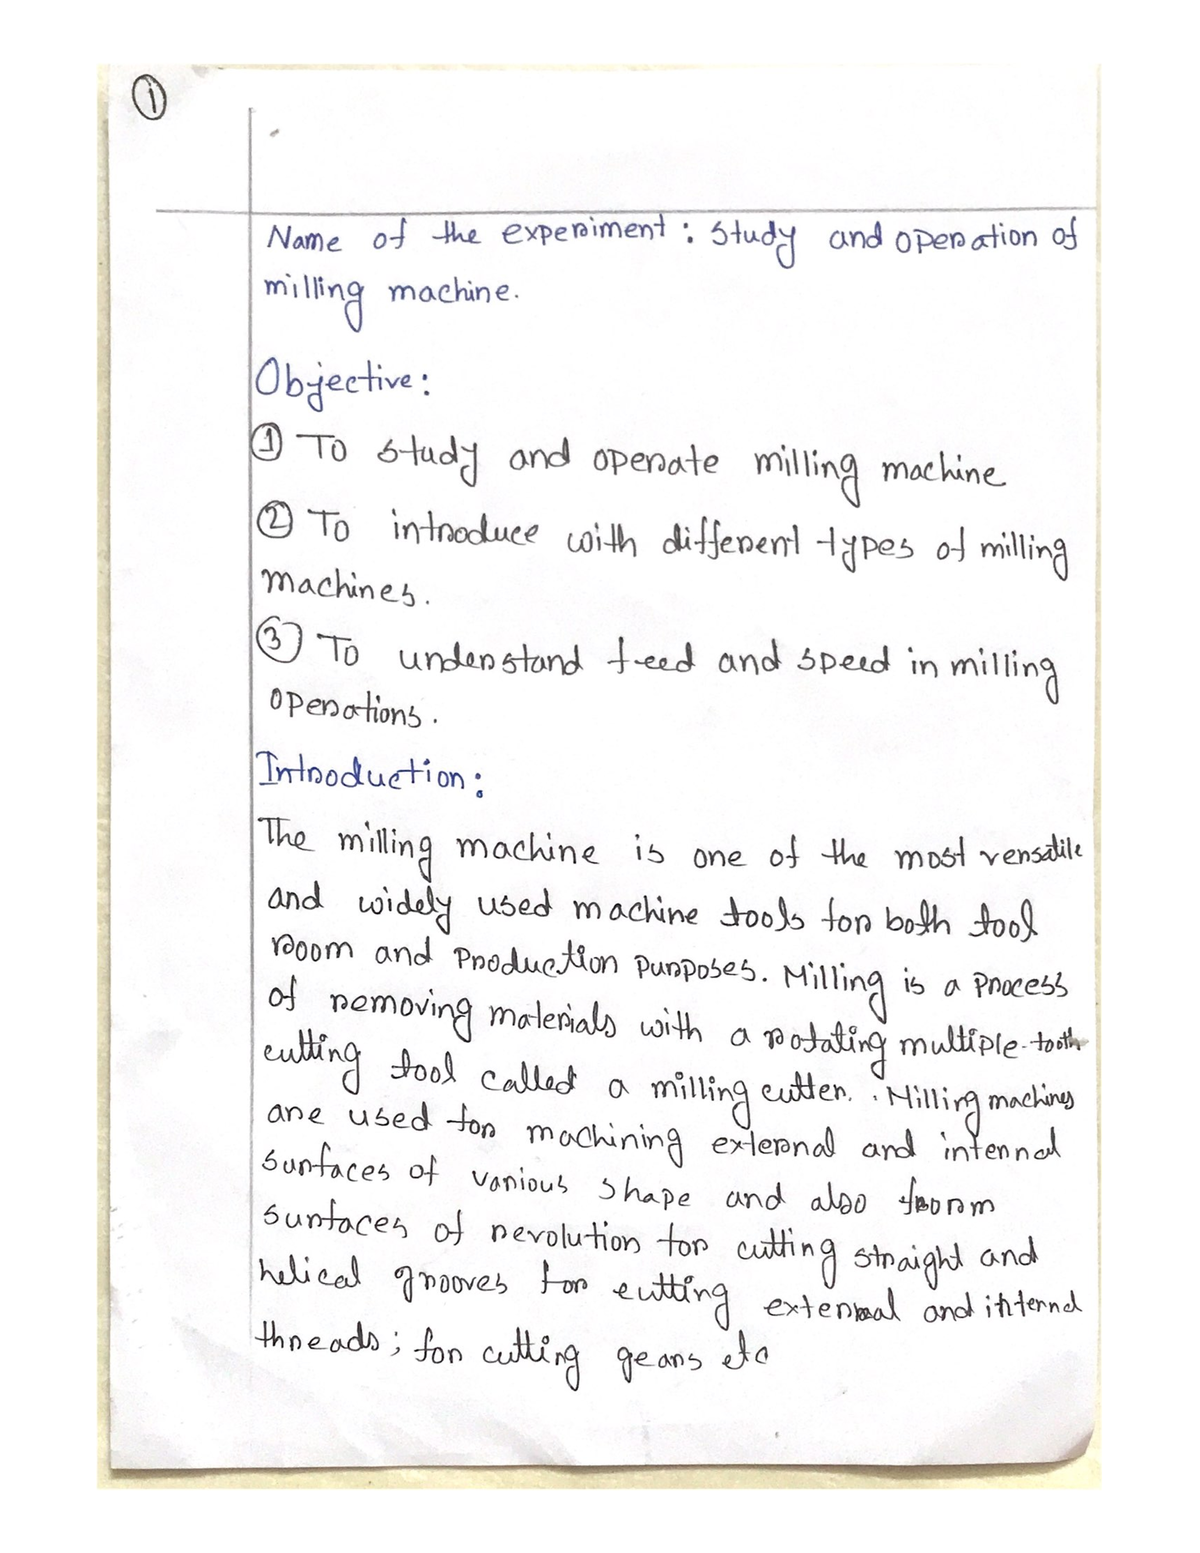 1
Name of the experiment : Study and operation of
milling machine.
Objective :
① To study and operate milling machine
② To introduce with different types of milling
machines.
③ To understand feed and speed in milling
operations.
Introduction :
The milling machine is one of the most versatile
and widely used machine tools for both tool
room and production purposes. Milling is a process
of removing materials with a rotating multiple-tooth
cutting tool called a milling cutter. Milling machines
are used for machining external and internal
surfaces of various shape and also form
surfaces of revolution for cutting straight and
helical grooves for cutting external and internal
threads; for cutting gears etc